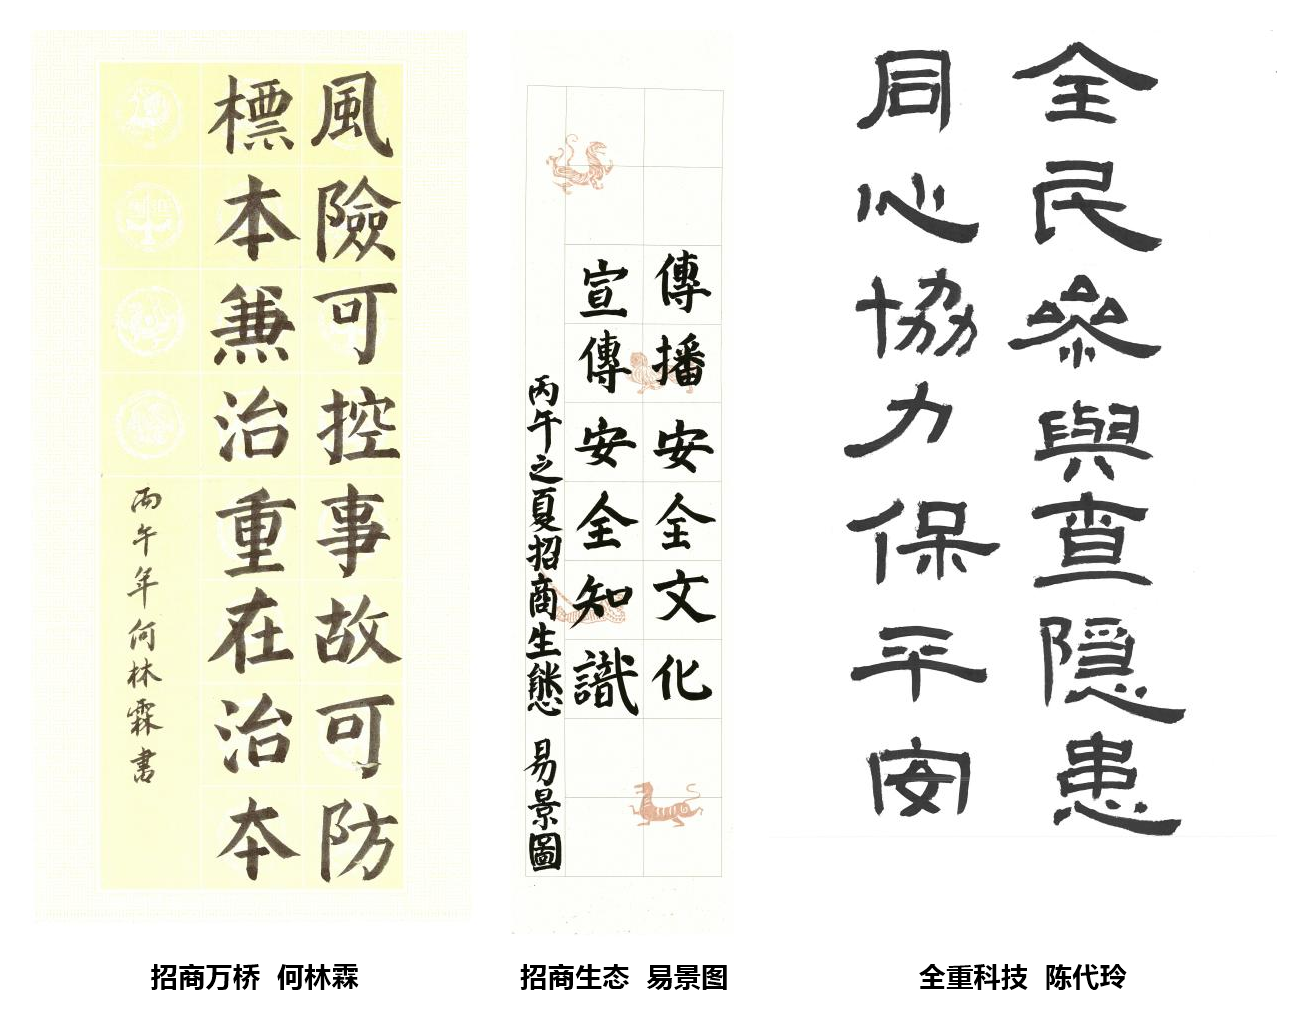 風險可控事故可防
標本兼治重在治本
丙午年何林霖書
傳播安全文化
宣傳安全知識
丙午之夏招商生態 易景圖
全民參與查隐患
同心協力保平安
招商万桥 何林霖
招商生态 易景图
全重科技 陈代玲